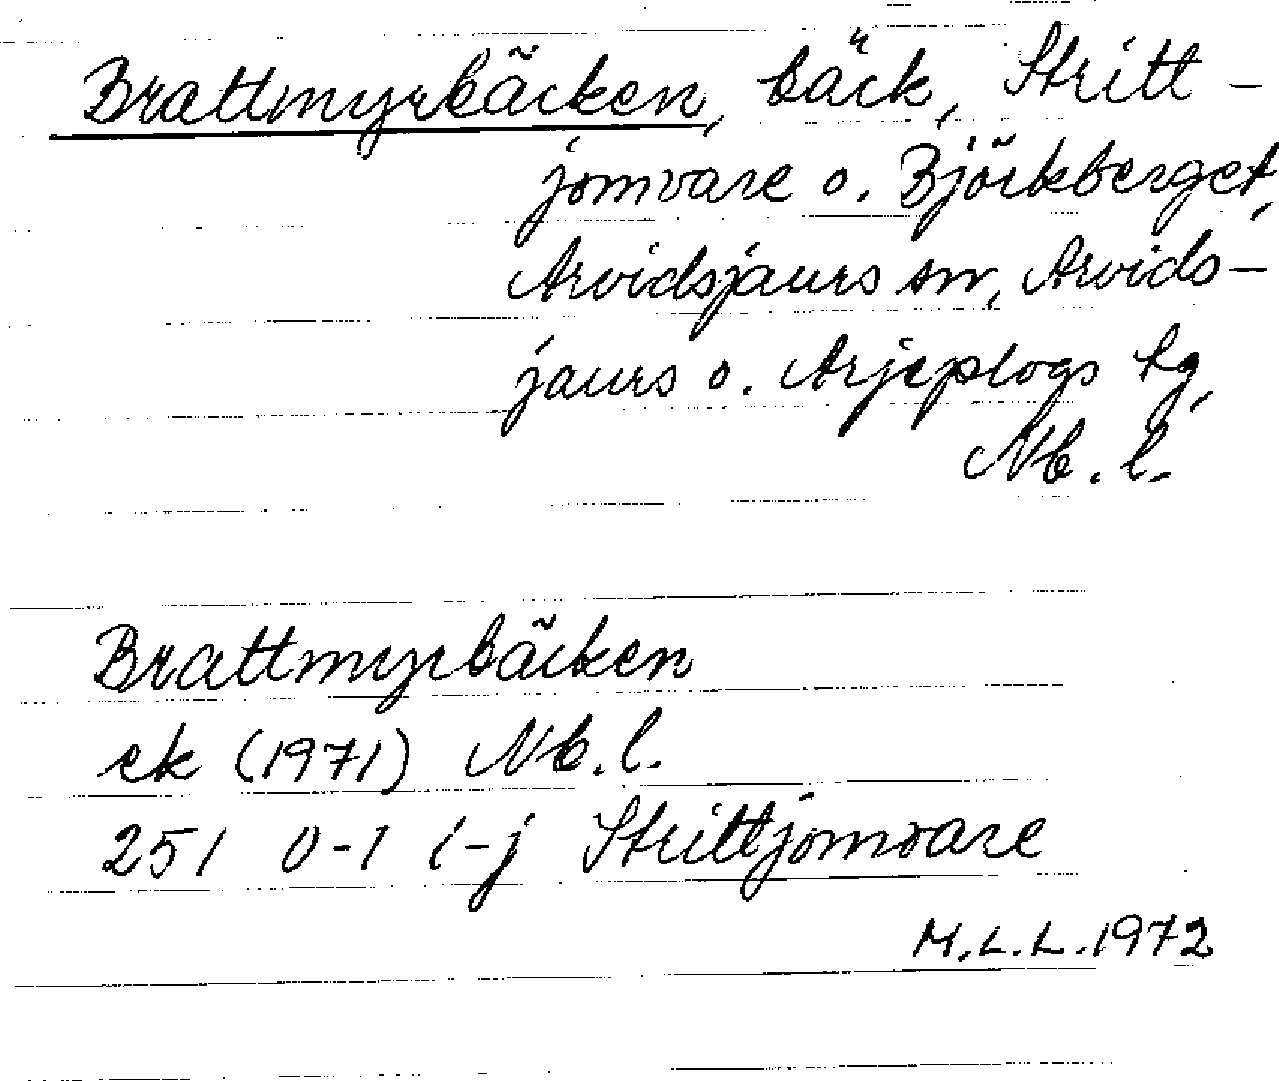 Brattmyrbäcken, bäck, Stritt-
jomvare o. Björkberget,
Arvidsjaurs sn, Arvids-
jaurs o. Arjeplogs tg,
Nb. l.
Brattmyrbäcken
ek (1971) Nb. l.
251 0-1 i-j Strittjomvare
M.L.L. 1972